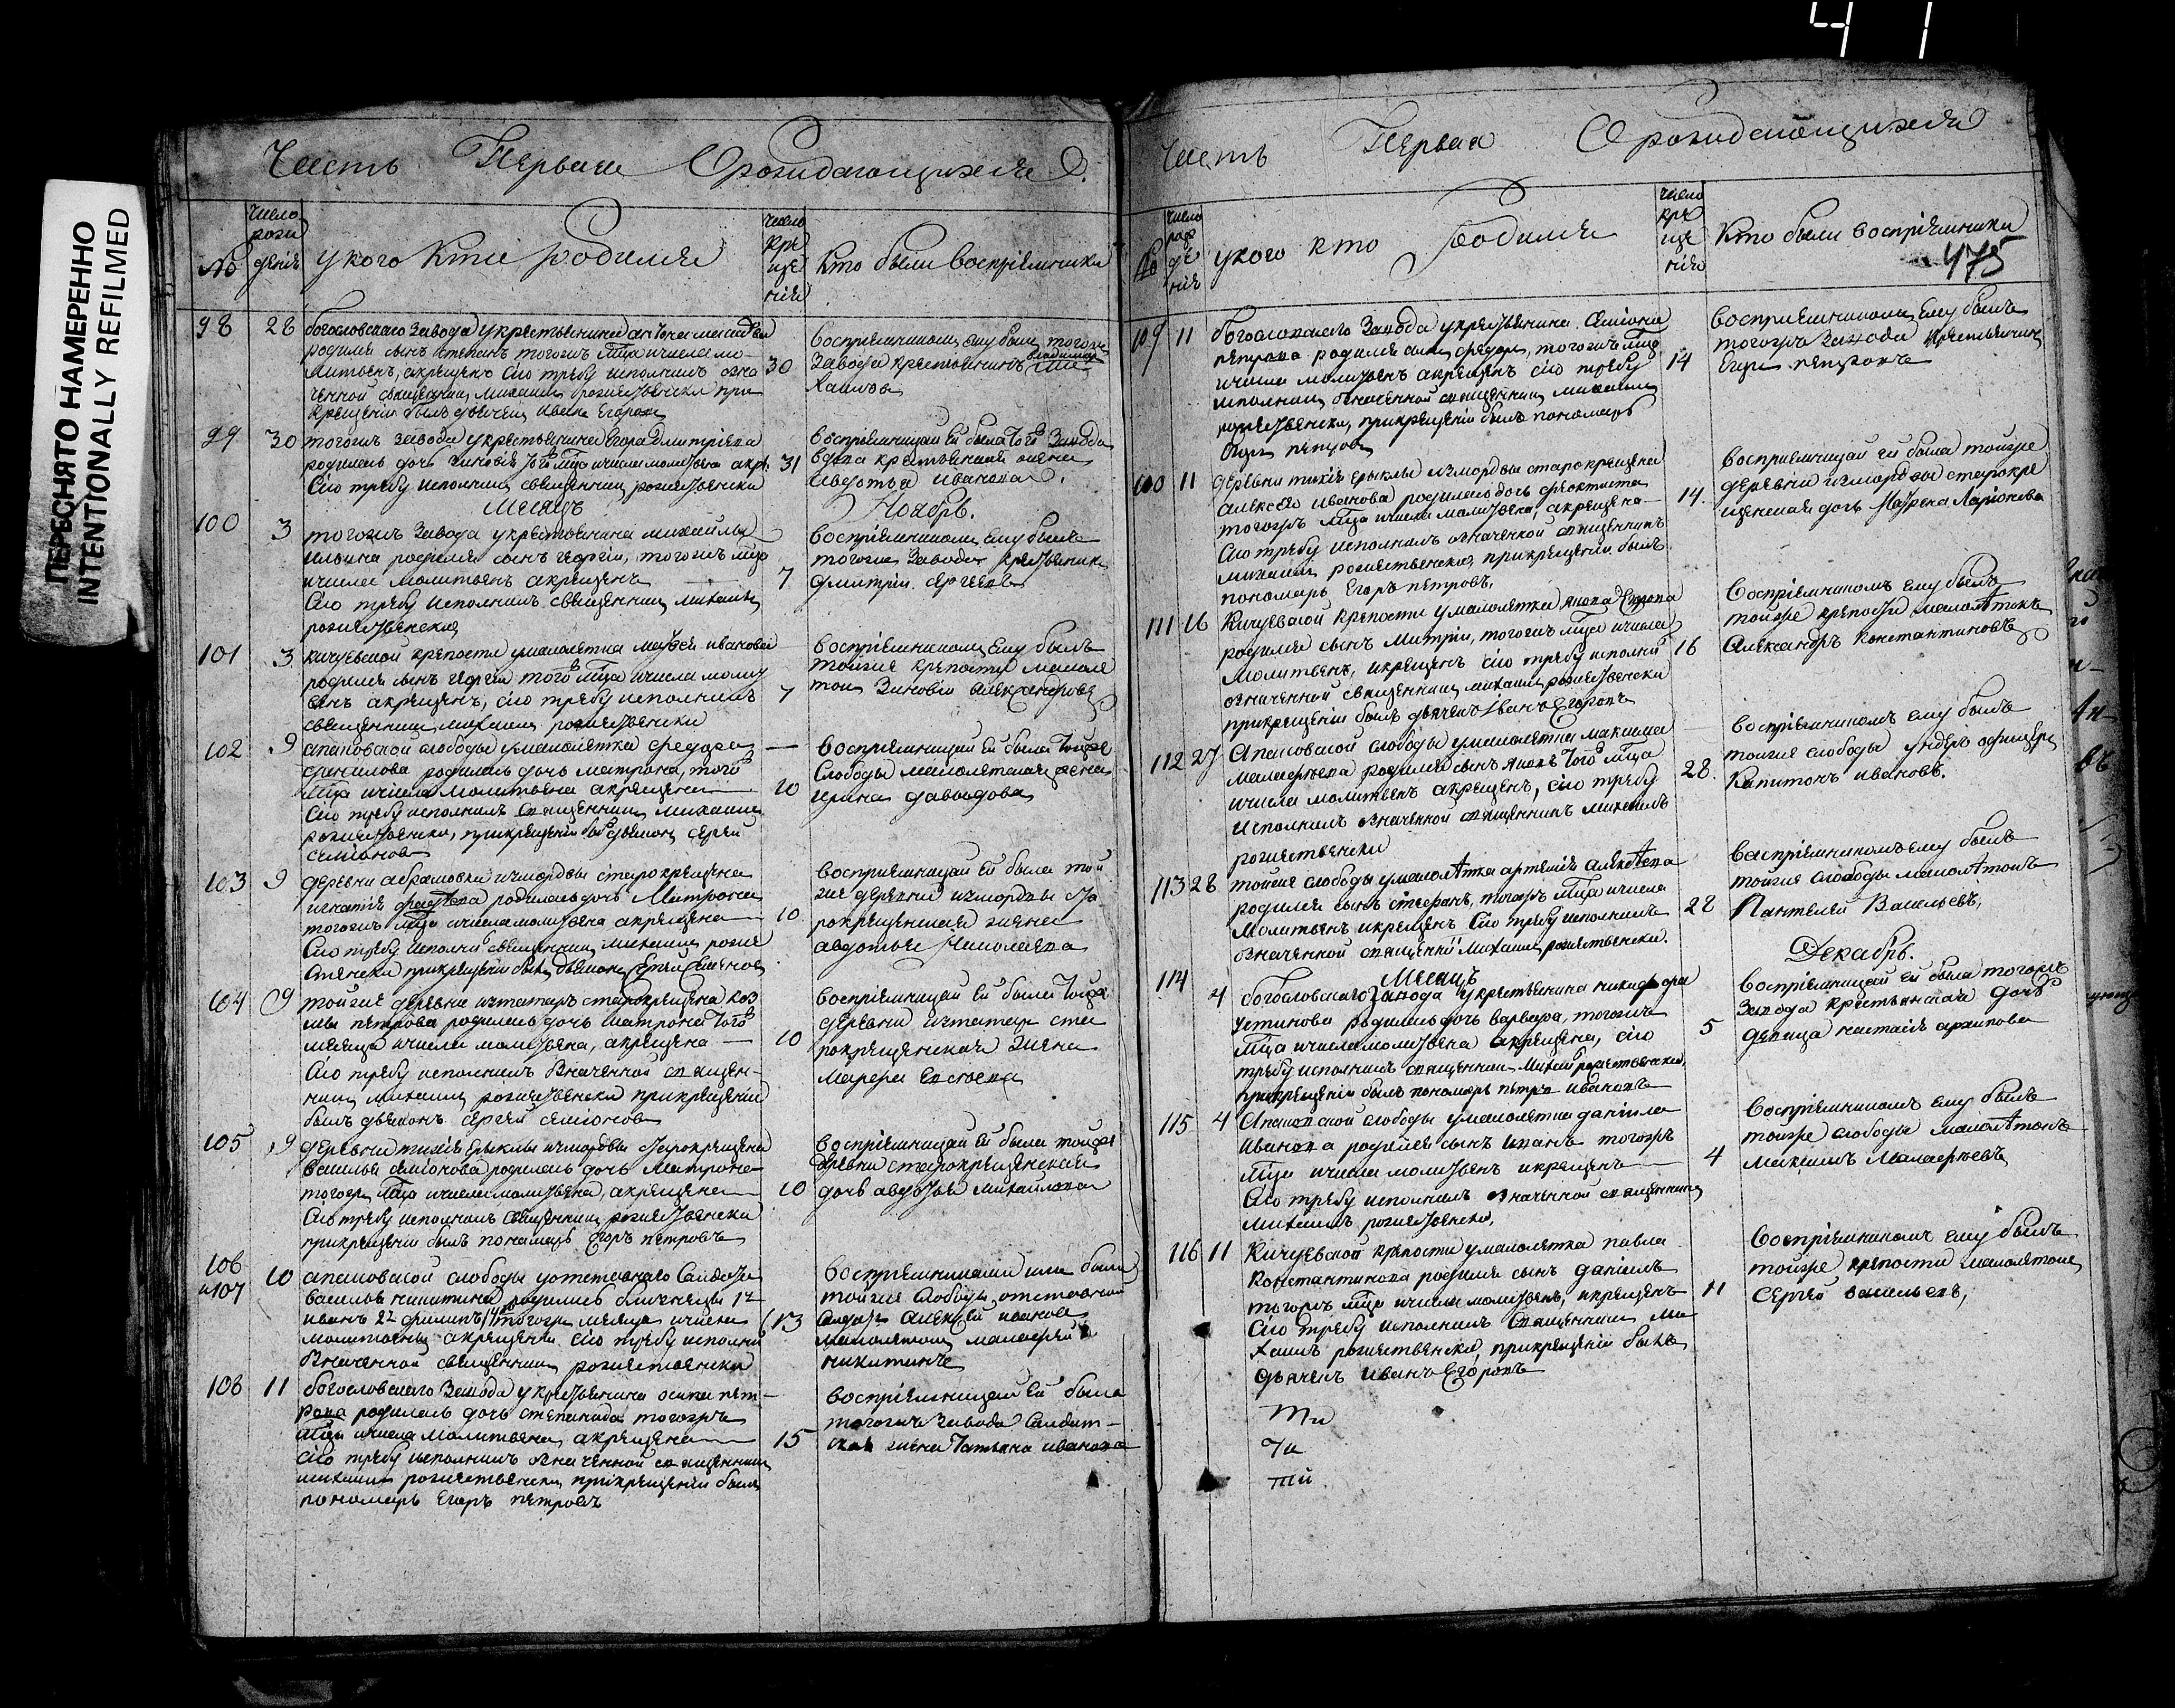 4 1
ПЕРЕСНЯТО НАМЕРЕННО
INTENTIONALLY REFILMED
Часть Первая О рождающихся
№
число рождения
у кого кто родился
число крещения
кто были восприемники
98 28 богословскаго завода укрестьянина
родился сынъ степанъ тогожъ мца ичисла мо-
литвенъ, акрещенъ сию требу исполнилъ озна
ченной священникъ михаилъ рожественски при
крещении былъ дьячекъ иванъ Егоровъ
30
восприемникомъ ему былъ тогожъ
завода крестьянинъ
99 30 тогожъ завода укрестьянина Егора Дмитриева
родилась дочь Зиновия того мца ичисла молитвена акре.
Сию требу исполнилъ священникъ рожественски
31
восприемницей ей была того завода
вдова крестьянская жена
Авдотья иванова
Месяцъ Ноябрь.
100 3 тогожъ завода укрестьянина михаила
ильина родился сынъ георгий, тогожъ мца
ичисла молитвенъ акрещенъ
Сию требу исполнилъ священникъ михаилъ
рожественски
7
восприемникомъ ему былъ
тогожъ завода крестьянинъ
дмитрий сергеевъ
101 3 кичуевской крепости умалолетка иванова
родился сынъ георгий того мца ичисла молит
венъ акрещенъ, сию требу исполнилъ
священникъ михаилъ рожественски
7
восприемникомъ ему былъ
тойже крепости малоле
токъ Зиновий александровъ
102 9 слободы умалолетка федора
данилова родилась дочь матрона, того
мца ичисла молитвена акрещена
Сию требу исполнилъ священникъ михаилъ
рожественски, прикрещении былъ дьяконъ сергей
семионовъ
10
восприемницей ей была тойже
слободы малолетская жена
ирина давыдова
103 9 деревни абрамовки измордвы старокрещена
игнатия фадеева родилась дочь Матрона
тогожъ мца ичисла молитвена акрещена
Сию требу исполнилъ священникъ михаилъ роже
ственски прикрещении былъ дьяконъ Сергей Семеновъ
10
восприемницей ей была той
же деревни измордвы ста
рокрещенская жена
авдотья Николаева
104 9 тойже деревни изтатаръ старокрещена коз
мы петрова родилась дочь матрона того
месяца ичисла молитвена, акрещена
Сию требу исполнилъ означенной священ-
никъ михаилъ рожественски прикрещении
былъ дьяконъ сергей семионовъ
10
восприемницей ей была тойже
деревни изтатаръ ста
рокрещенская жена
105 9 деревни измордвы старокрещена
василья семионова родилась дочь Матрона
тогожъ мца ичисла молитвена, акрещена
Сию требу исполнилъ священникъ рожественски
прикрещении былъ пономарь Егоръ петровъ
10
восприемницей ей была тойже
деревни старокрещенская
дочь авдотья михайлова
106
и107 10 слободы уотставнаго Салдата
василья никитина родились близнецы 1й
иванъ 2й филипъ тогожъ месяца ичисла
молитвены акрещены сию требу исполнилъ
означенной священникъ рожественски
13
восприемниками имъ были
тойже слободы отставной
алексей ивановъ
малолетокъ
никитинъ
108 11 богословскаго завода укрестьянина осипа пет-
рова родилась дочь степанида тогожъ
мца ичисла молитвена, акрещена
сию требу исполнилъ означенной священникъ
михаилъ рожественски, прикрещении былъ
пономарь Егоръ петровъ
15
восприемницей ей была
тогожъ завода Салдат-
ская жена татьяна иванова
Часть Первая О рождающихся
№
число рождения
у кого кто родился
число крещения
кто были восприемники
475
109 11 богословскаго завода укрестьянина Семиона
петрова родился сынъ федоръ, тогожъ мца
ичисла молитвенъ акрещенъ сию требу
исполнилъ означенной священникъ михаилъ
рожественски, прикрещении былъ пономарь
Егоръ петровъ
14
восприемникомъ ему былъ
тогожъ завода крестьянинъ
Егоръ петровъ
11 деревни измордвы старокрещена
алексея иванова родилась дочь феоктиста
тогожъ мца ичисла молитвена, акрещена
сию требу исполнилъ означенной священникъ
михаилъ рожественски, прикрещении былъ
пономарь Егоръ петровъ.
14.
восприемницей ей была тойже
деревни измордвы старокре
щенская дочь Ларионова
111 16 Кичуевской крепости умалолетка якова Егорова
родился сынъ Митрий, тогожъ мца ичисла
молитвенъ, икрещенъ сию требу исполнилъ
означенной священникъ михаилъ рожественски
прикрещении былъ дьячекъ иванъ Егоровъ
16
восприемникомъ ему былъ
тойже крепости малолѣтокъ
Александръ Константиновъ
112 27 слободы умалолетка максима
родился сынъ яковъ того мца
ичисла молитвенъ акрещенъ, сию требу
исполнилъ означенной священникъ михаилъ
рожественски
28.
восприемникомъ ему былъ
тойже слободы ундеръ офицеръ
Капитонъ ивановъ.
113 28 тойже слободы умалолѣтка артемия алексѣева
родился сынъ стефанъ, тогожъ мца ичисла
молитвенъ икрещенъ Сию требу исполнилъ
означенной священникъ михаилъ рожественски.
28
восприемникомъ ему былъ
тойже слободы малолѣтокъ
Пантелей Васильевъ,
Месяцъ Декабрь.
114 4 богословскаго завода укрестьянина никифора
устинова родилась дочь варвара, тогожъ
мца ичисла молитвена акрещена, сию
требу исполнилъ священникъ Михаилъ рожественски,
прикрещении былъ пономарь петръ ивановъ
5
восприемницей ей была тогожъ
завода крестьянская дочь
девица настасия архипова
115 4 слободы умалолетка данила
иванова родился сынъ иванъ тогожъ
мца ичисла молитвенъ икрещенъ
Сию требу исполнилъ означенной священникъ
михаилъ рожественски,
4
восприемникомъ ему былъ
тойже слободы малолѣтокъ
Максимъ Малафеевъ
116 11 Кичуевской крепости умалолетка павла
константинова родился сынъ даниилъ
тогожъ мца ичисла молитвенъ, икрещенъ
Сию требу исполнилъ священникъ ми
хаилъ рожественски, прикрещении былъ
дьячекъ иванъ Егоровъ
11
восприемникомъ ему былъ
тойже крепости малолетокъ
Сергей васильевъ,